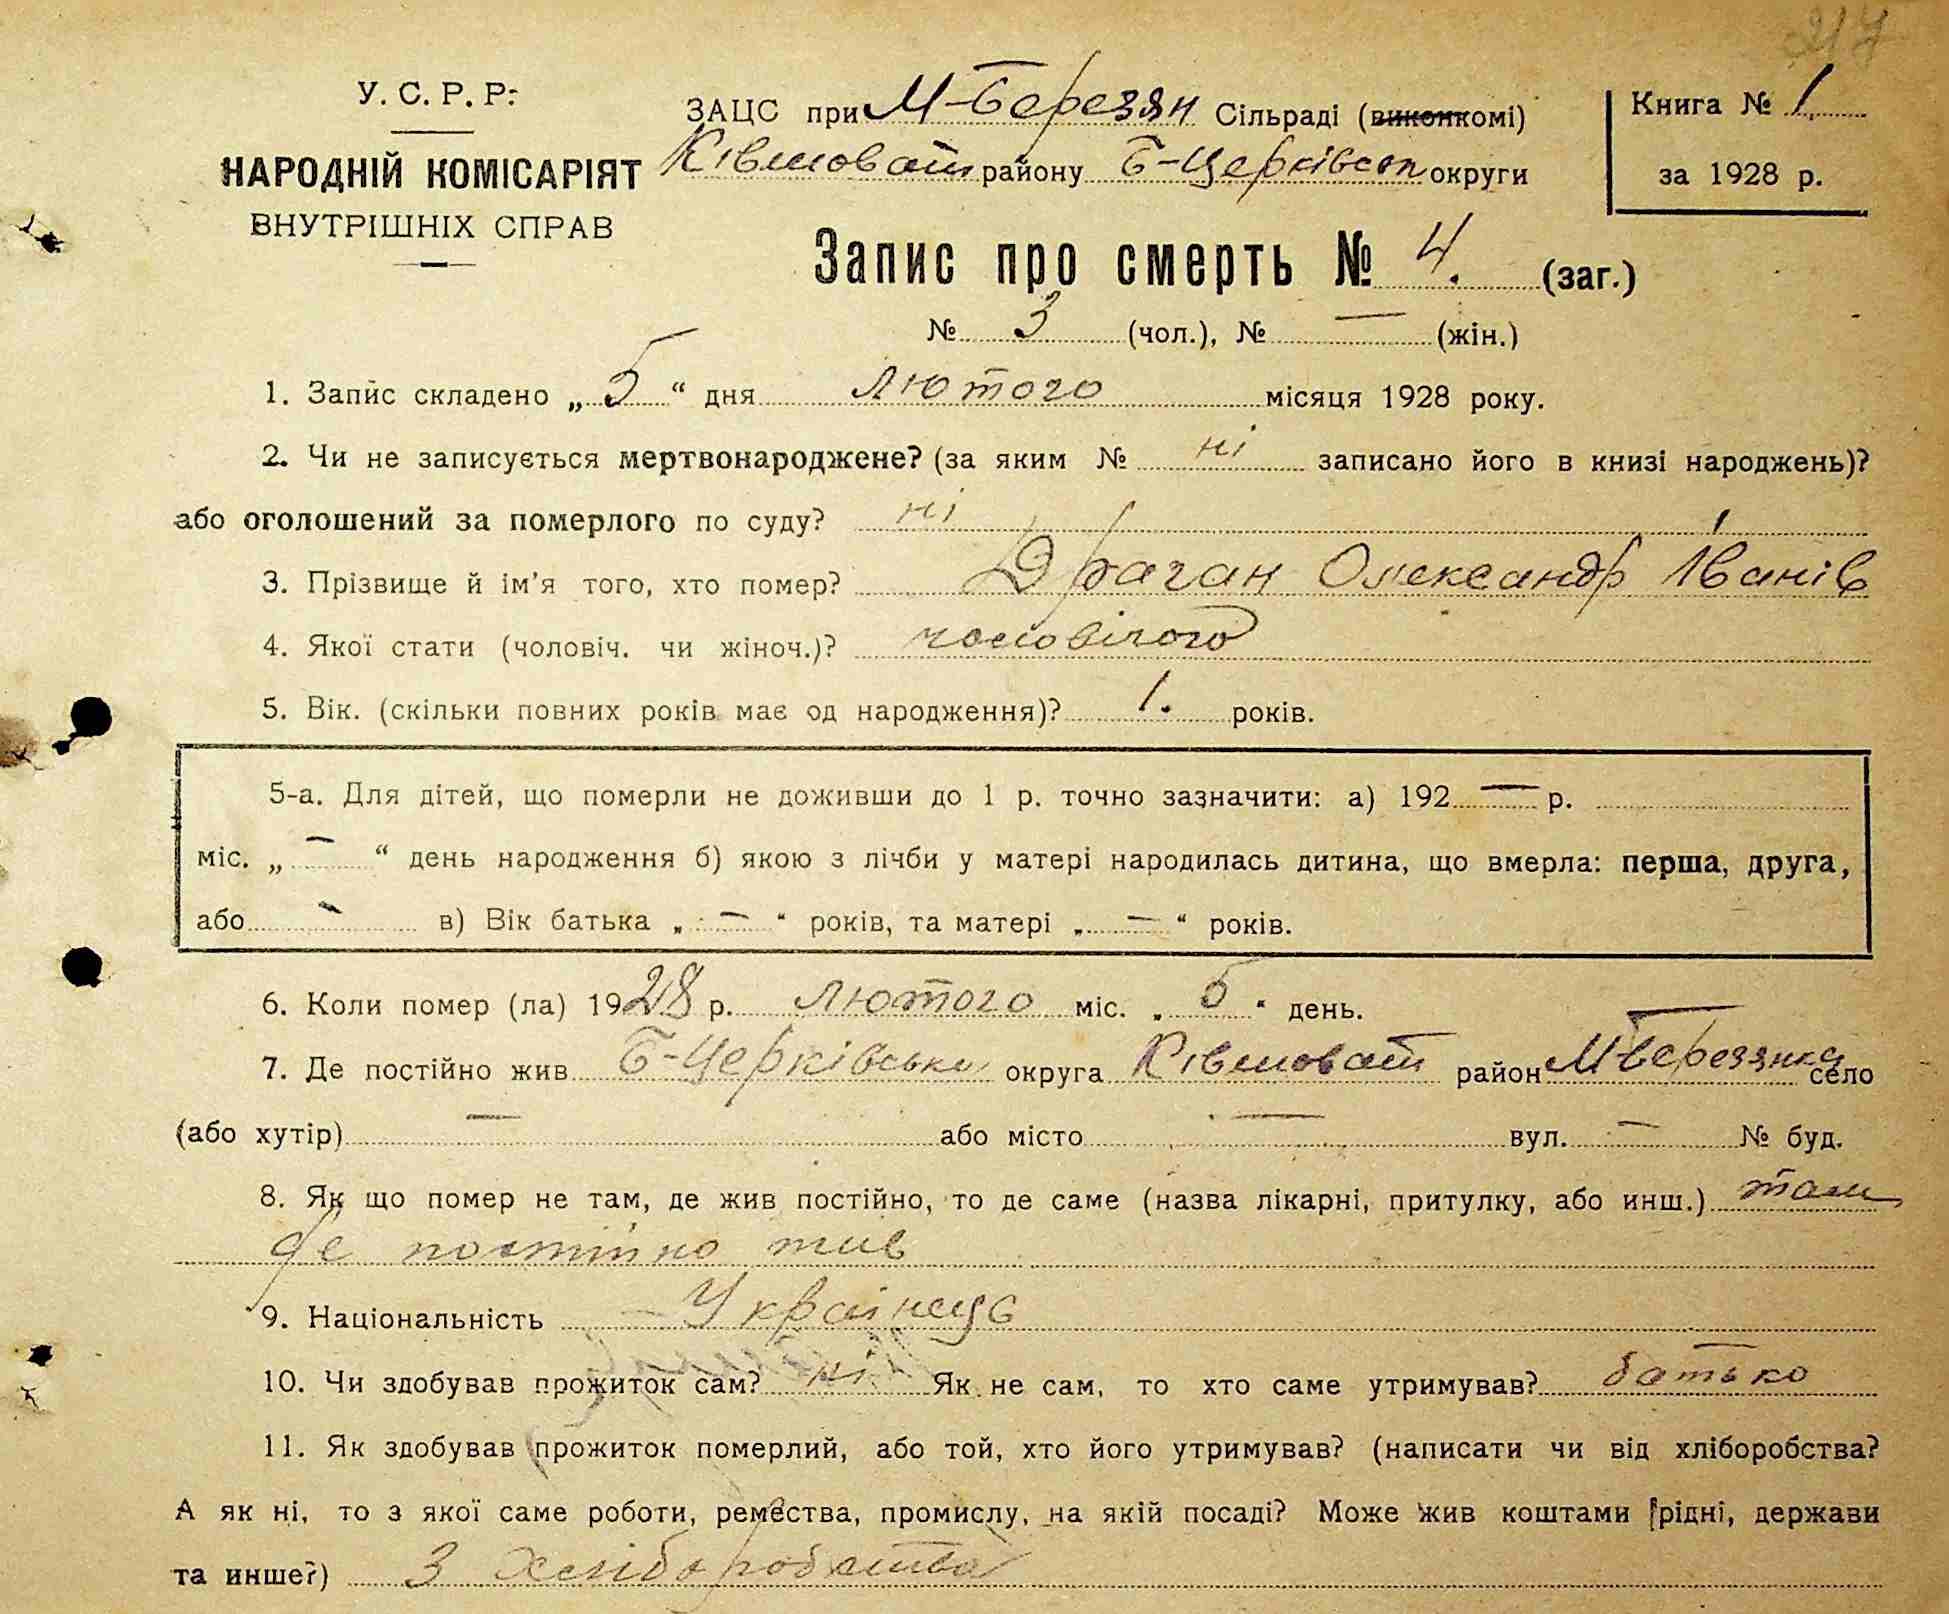 217
У. С. Р. Р.
НАРОДНІЙ КОМІСАРІЯТ
ВНУТРІШНІХ СПРАВ
ЗАЦС при М-Березян Сільраді (виконкомі)
Ківшоват району Б-Церківськ округи
Книга № 1
за 1928 р.
Запис про смерть № 4. (заг.)
№ 3 (чол.), № — (жін.)
1. Запис складено „ 5 “ дня лютого місяця 1928 року.
2. Чи не записується мертвонароджене? (за яким № ні записано його в книзі народжень)?
або оголошений за померлого по суду? ні
3. Прізвище й ім’я того, хто помер? Драган Олександр Іванів
4. Якої стати (чоловіч. чи жіноч.)? чоловічого
5. Вік. (скільки повних років має од народження)? 1. років.
5-а. Для дітей, що померли не доживши до 1 р. точно зазначити: а) 192 — р.
міс. „ — “ день народження б) якою з лічби у матері народилась дитина, що вмерла: перша, друга,
або — в) Вік батька „ — “ років, та матері „ — “ років.
6. Коли помер (ла) 1928 р. лютого міс. „ 5 “ день.
7. Де постійно жив Б-Церківська округа Ківшоват район М-Березянка село
(або хутір) — або місто — вул. — № буд.
8. Як що помер не там, де жив постійно, то де саме (назва лікарні, притулку, або инш.) там
де постійно жив
9. Національність Українець
10. Чи здобував прожиток сам? ні Як не сам, то хто саме утримував? батько
11. Як здобував прожиток померлий, або той, хто його утримував? (написати чи від хліборобства?
А як ні, то з якої саме роботи, ремества, промислу, на якій посаді? Може жив коштами рідні, держави
та инше?) З хліборобства